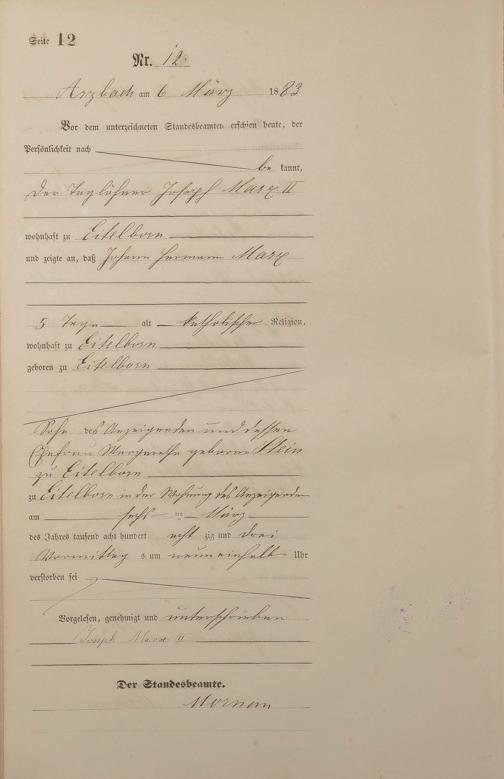 Seite 12
Nr. 12
Arzbach am 6 März 1883
Vor dem unterzeichneten Standesbeamten erschien heute, der
Persönlichkeit nach
be kannt,
der Taglöhner Joseph Marx II
wohnhaft zu Eitelborn
und zeigte an, daß Johann Hermann Marx
5 Tage alt katholischer Religion,
wohnhaft zu Eitelborn
geboren zu Eitelborn
Sohn des Anzeigenden und dessen
Ehefrau Margaretha geborene Stein
zu Eitelborn
zu Eitelborn in der Wohnung des Anzeigenden
am sechs ten März
des Jahres tausend acht hundert acht zig und drei
Vormittags um neun einhalb Uhr
verstorben sei
Vorgelesen, genehmigt und unterschrieben
Joseph Marx II
Der Standesbeamte.